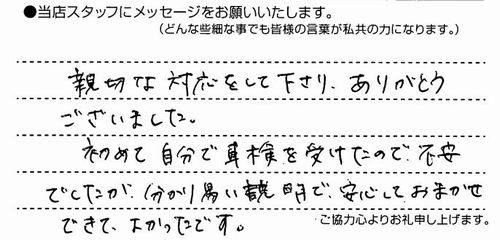 ●当店スタッフにメッセージをお願いいたします。
（どんな些細な事でも皆様の言葉が私共の力になります。）
親切な対応をして下さり、ありがとう
ございました。
初めて自分で車検を受けたので、不安
でしたが、分かり易い説明で、安心しておまかせ
できて、よかったです。
ご協力心よりお礼申し上げます。